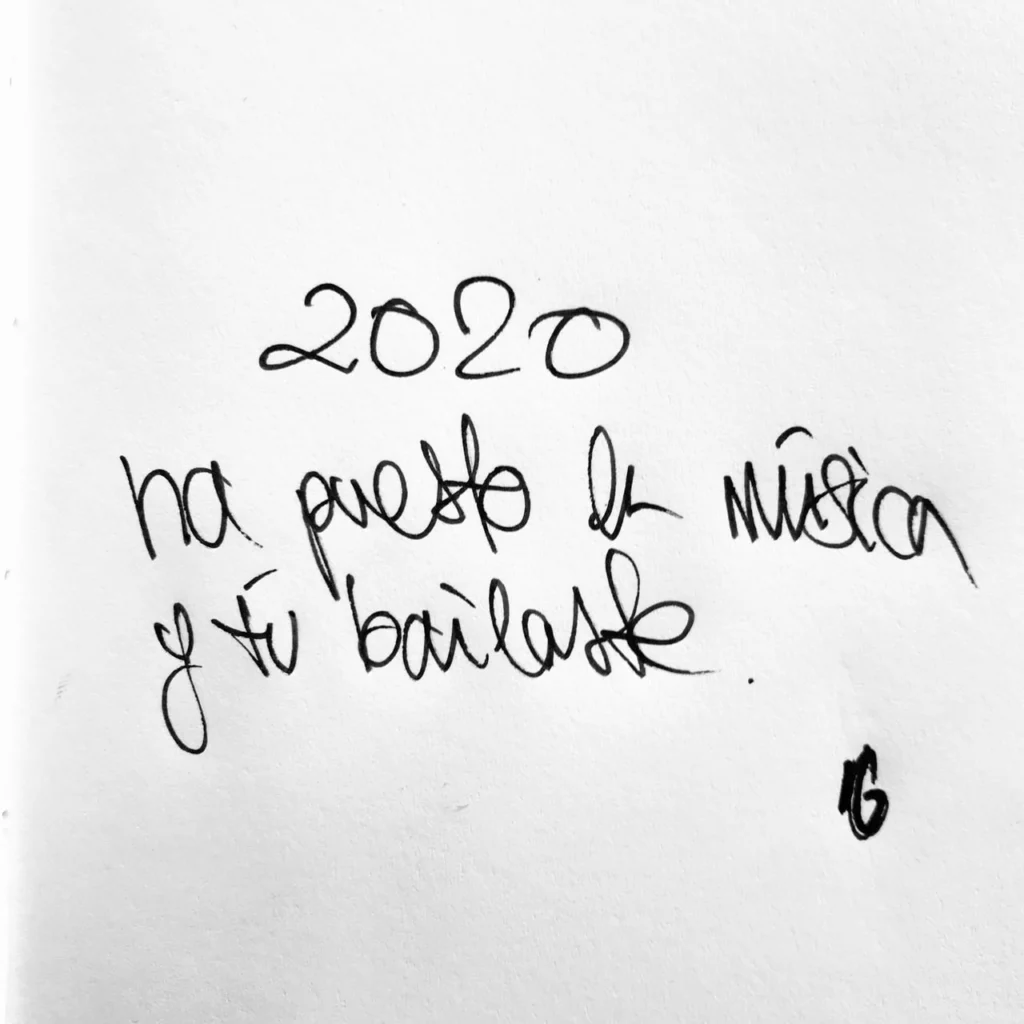 2020
ha puesto la música
y tú bailaste.